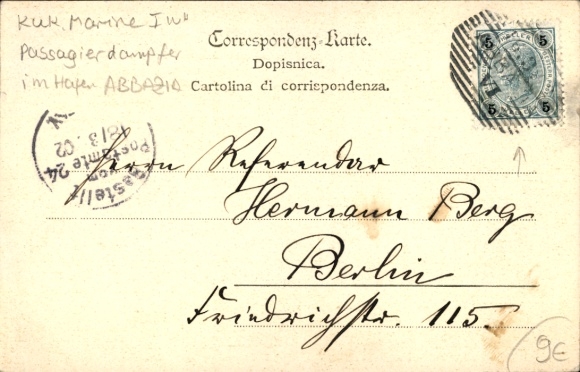 K.u.K. Marine I WK
Passagierdampfer
im Hafen ABBAZIA
Correspondenz-Karte.
Dopisnica.
Cartolina di corrispondenza.
5 5
5 5
Bestellt
vom
Postamte 24
18/3. 02
N.
Herrn Referendar
Hermann Berg
Berlin
Friedrichstr. 115.
9€